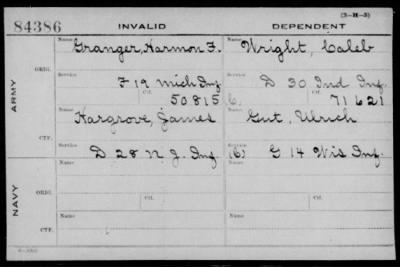 (3-H-3)
84386 INVALID DEPENDENT
ARMY
ORIG.
Name Granger, Harmon F. Name Wright, Caleb
Service F 19 Mich Inf Service D 30 Ind Inf.
Ctf. 50815 Ctf. 71621
CTF.
Name Hargrove, James Name Gut, Ulrich
Service D 28 N J. Inf. Service (6) G 14 Wis Inf.
NAVY
ORIG.
Name Name
Service Ctf. Service Ctf.
CTF.
Name Name